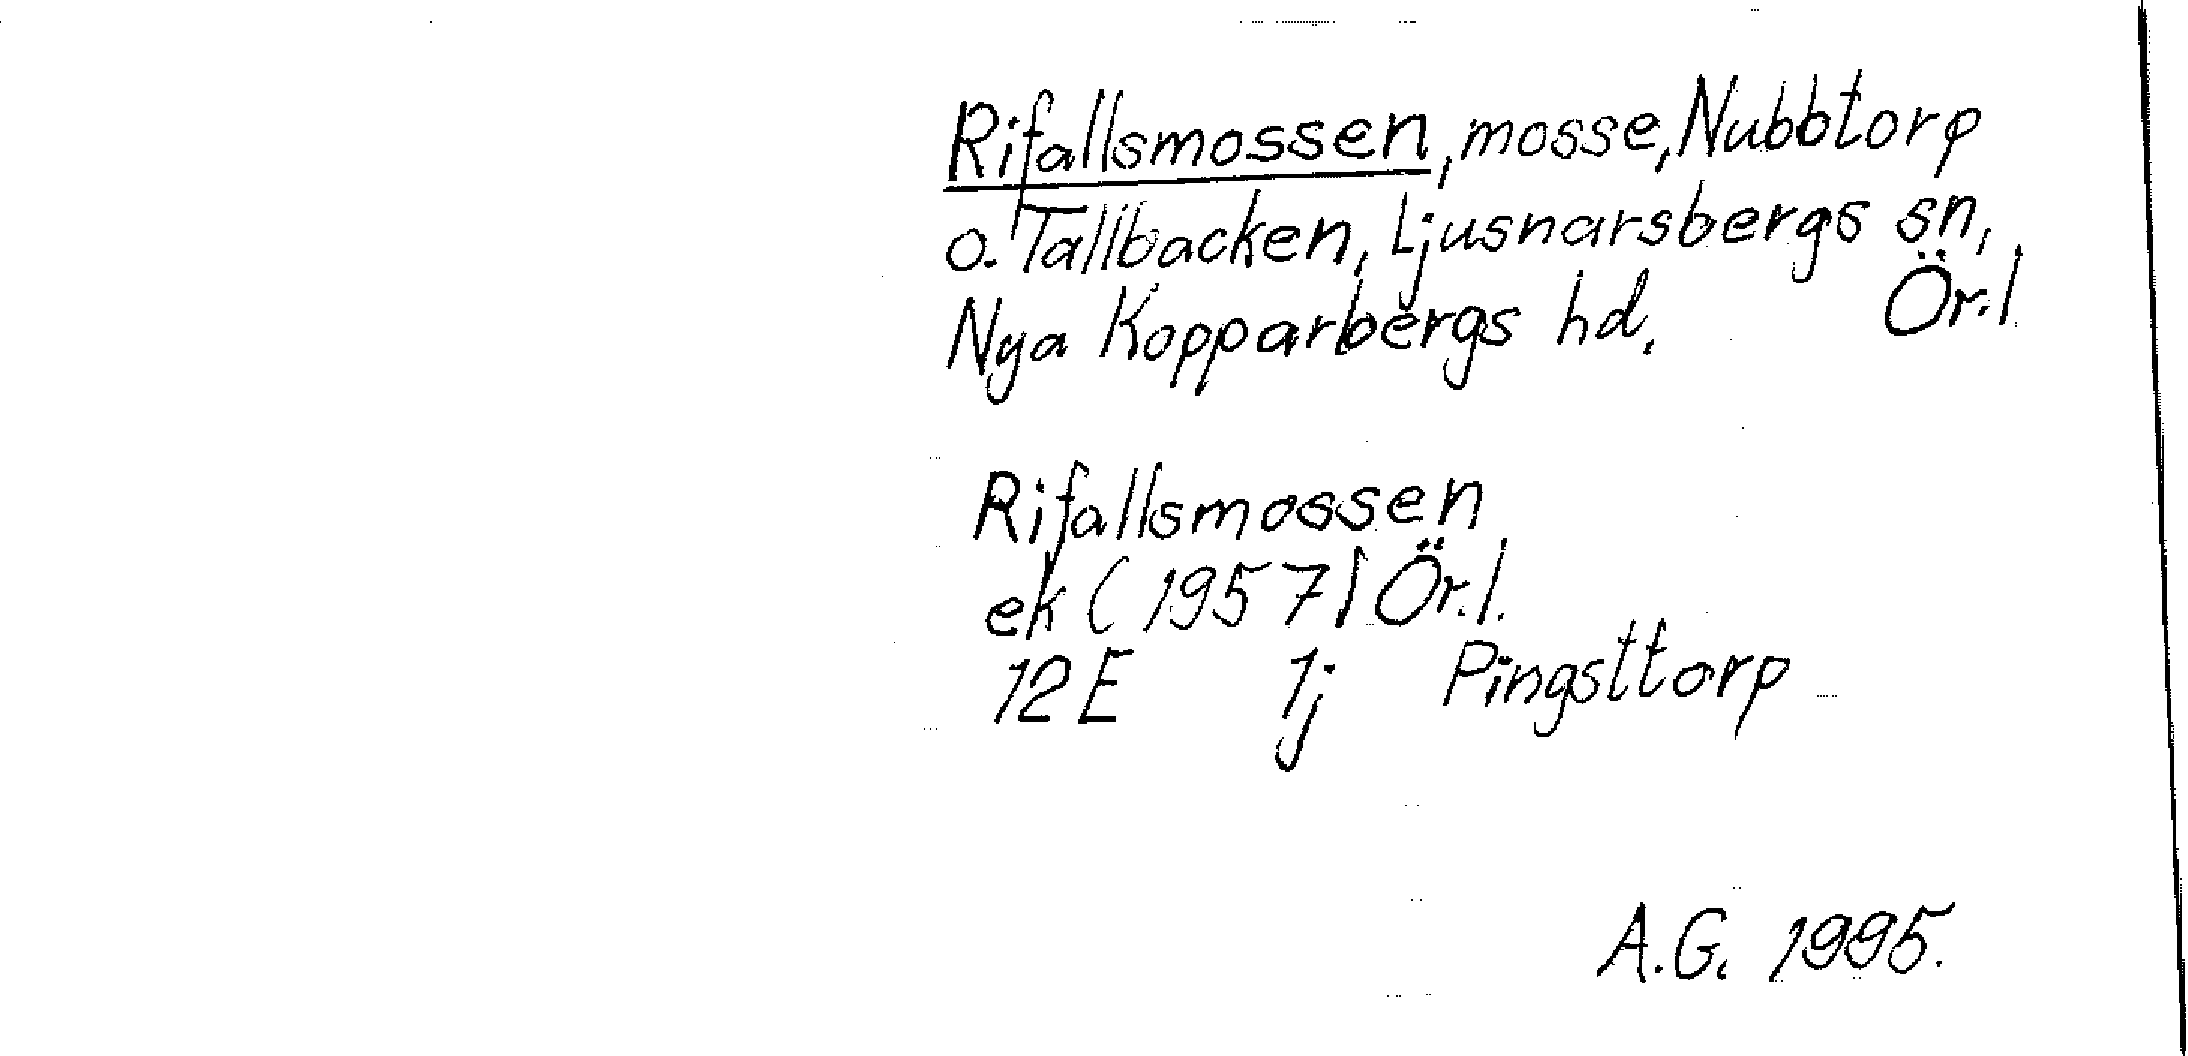 Rifallsmossen, mosse, Nubbtorp
o. Tallbacken, Ljusnarsbergs sn,
Nya Kopparbergs hd. Ör.l.
Rifallsmossen
ek (1957) Ör.l.
12E 1j Pingsttorp
A.G. 1995.